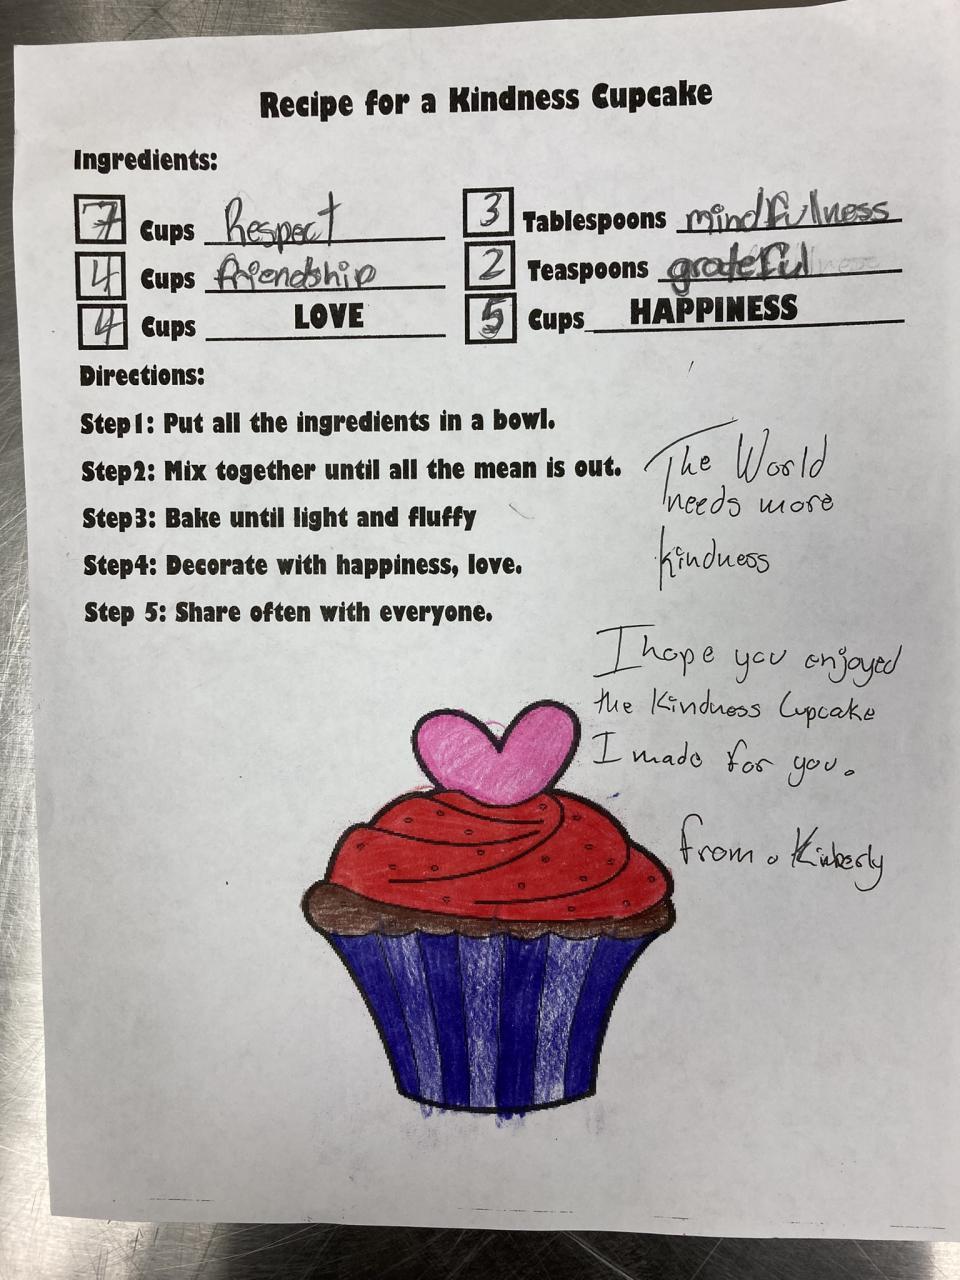 Recipe for a Kindness Cupcake
Ingredients:
7 Cups Respect
3 Tablespoons mindfulness
4 Cups friendship
2 Teaspoons grateful
4 Cups LOVE
5 Cups HAPPINESS
Directions:
Step1: Put all the ingredients in a bowl.
Step2: Mix together until all the mean is out.
Step3: Bake until light and fluffy
Step4: Decorate with happiness, love.
Step 5: Share often with everyone.
The World
needs more
kindness
I hope you enjoyed
the Kindness Cupcake
I made for you.
from . Kimberly